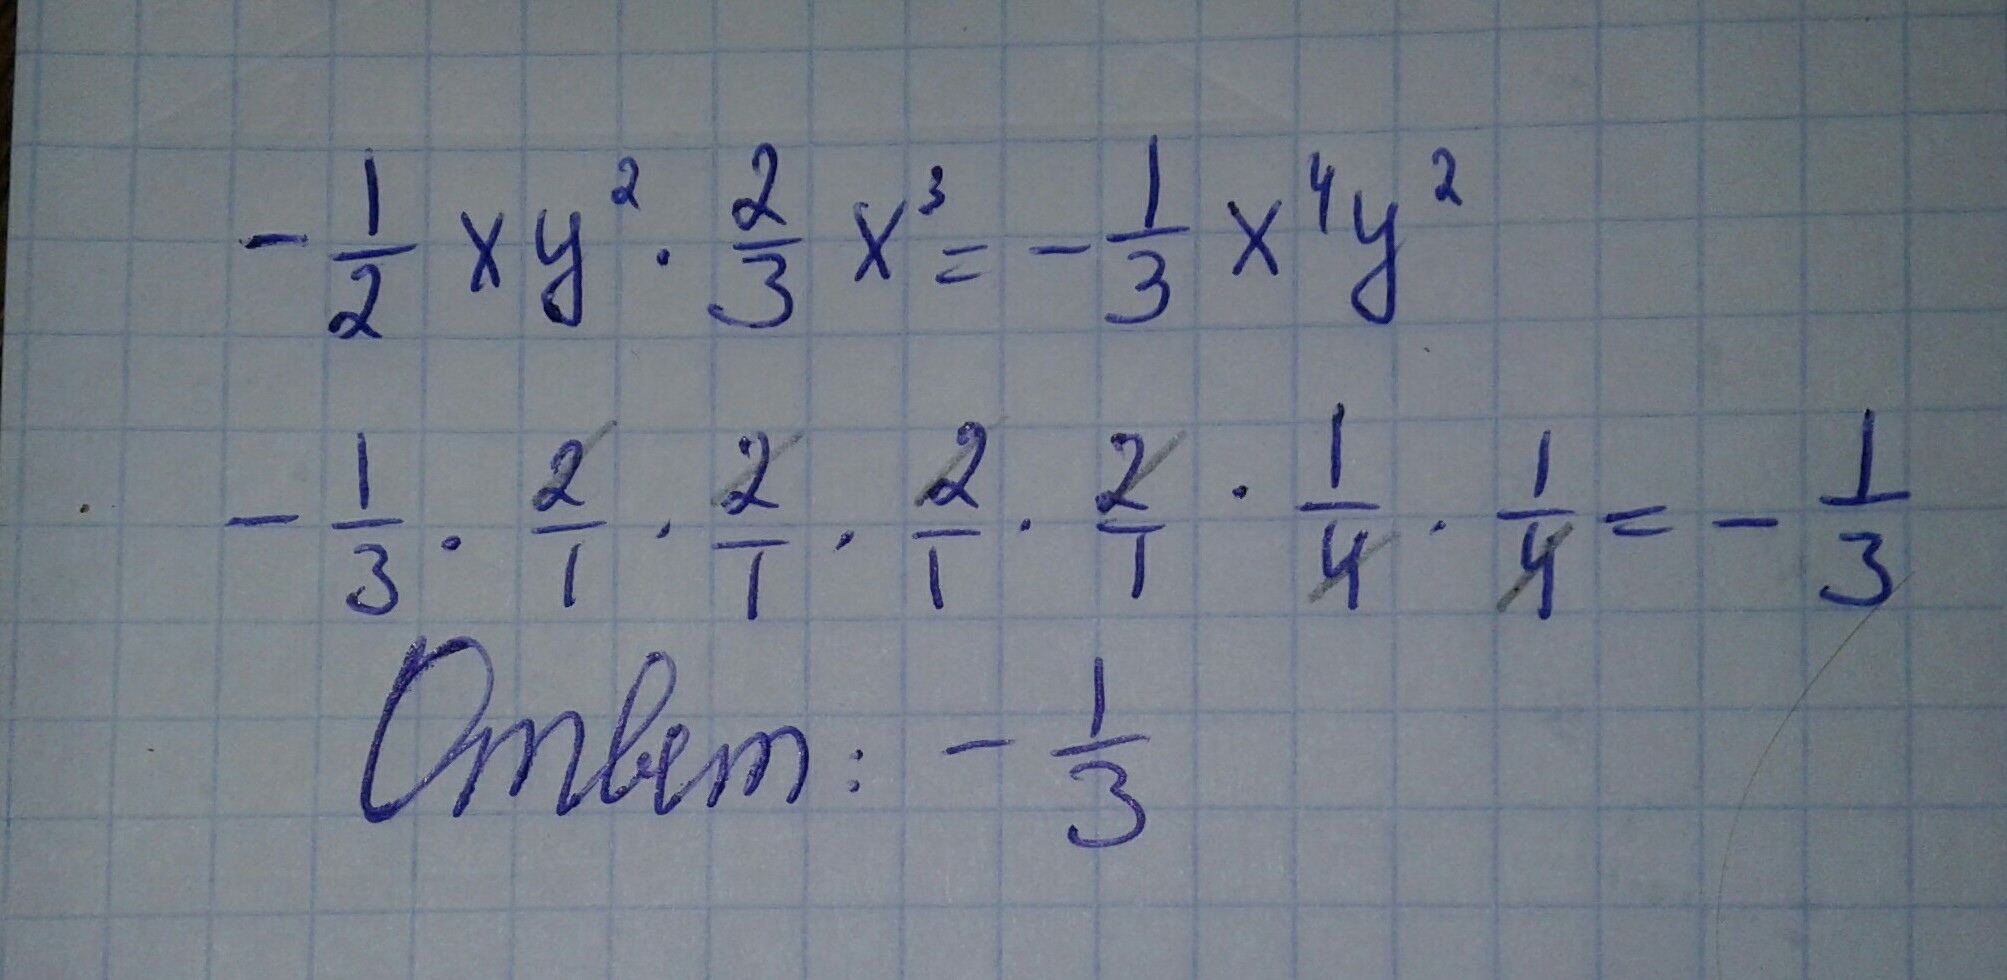 -1/2 xy² · 2/3 x³ = -1/3 x⁴y²
-1/3 · 2/1 · 2/1 · 2/1 · 2/1 · 1/4 · 1/4 = -1/3
Ответ: -1/3